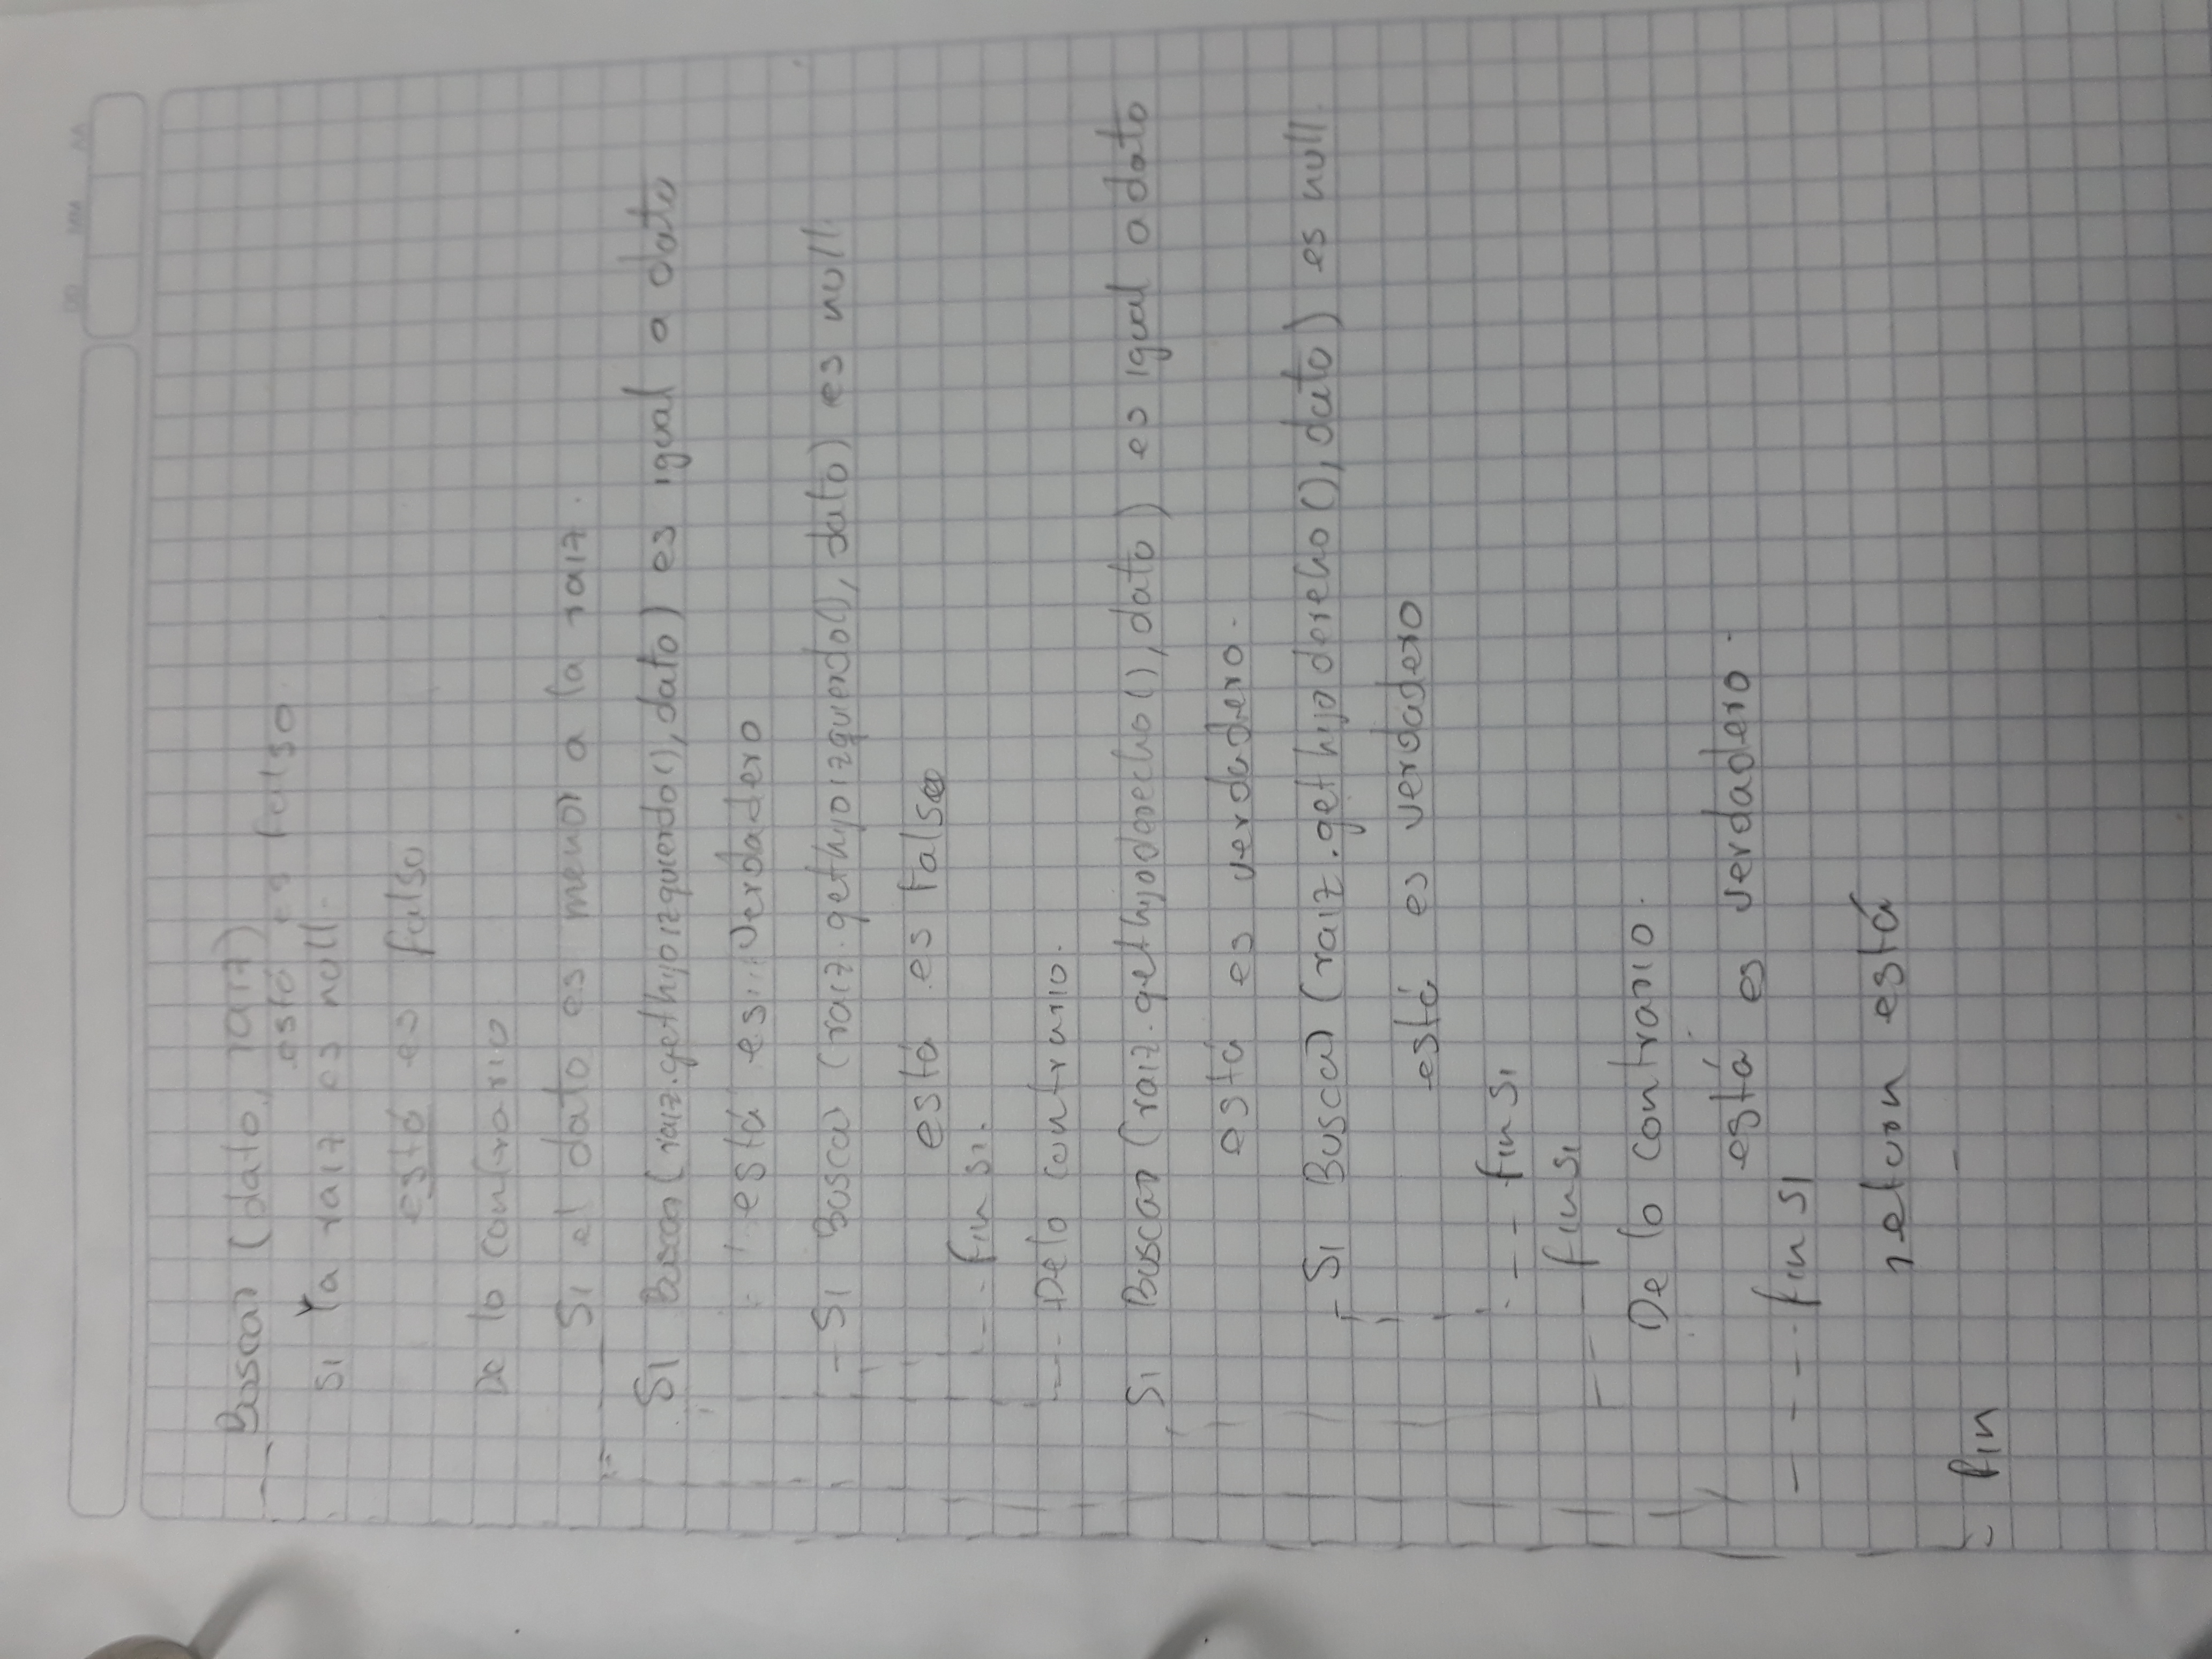 DD MM AA
Buscar (dato, raiz)
está es falso
Si la raiz es null.
está es falso
De lo contrario
Si el dato es menor a la raiz.
Si Buscar (raiz.gethijoizquierdo(), dato) es igual a dato
está es verdadero
Si Buscar (raiz.gethijoizquierdo(), dato) es null.
está es falso
fin si.
De lo contrario.
Si Buscar (raiz.gethijoderecho(), dato) es igual a dato
está es verdadero.
Si Buscar (raiz.gethijoderecho(), dato) es null.
está es verdadero
fin si
fin si
De lo contrario.
está es verdadero.
fin si
return está
fin